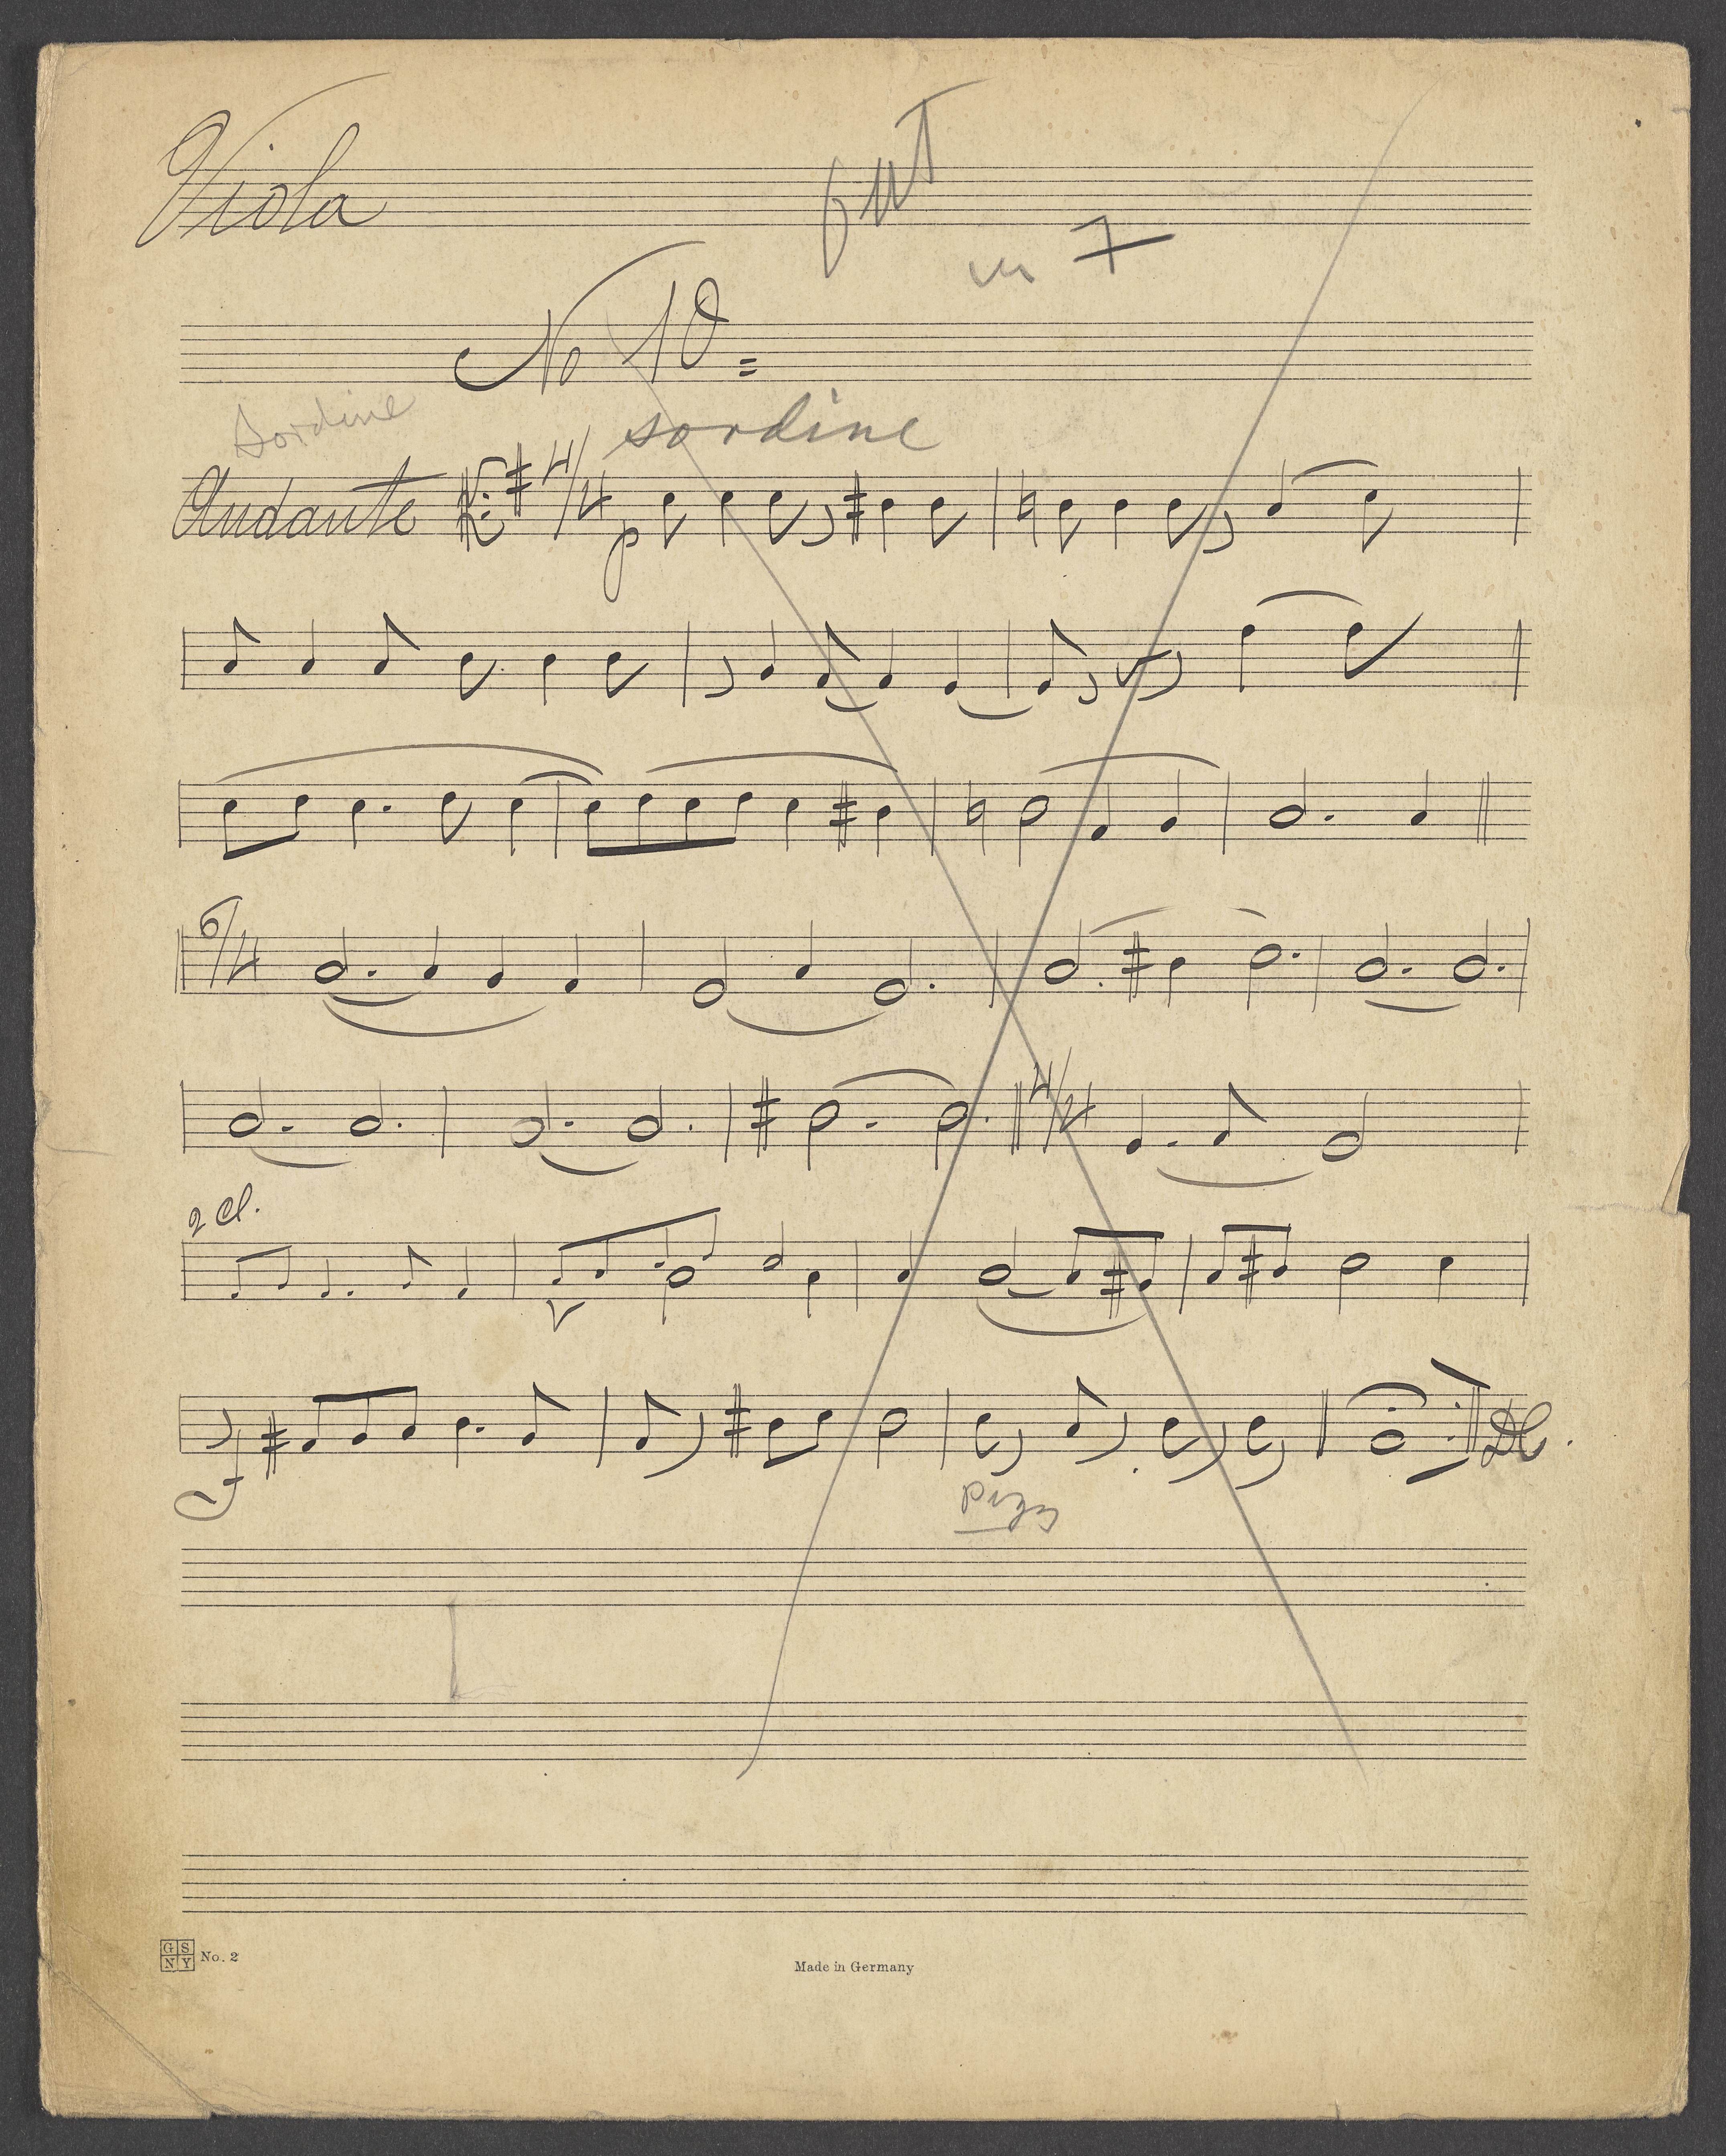 Viola
in 7
No 10 =
Sordine
sordine
Andante 4/4 p
6/4
4/4
2 Cl.
f
DC.
pizz
GS
NY No. 2
Made in Germany